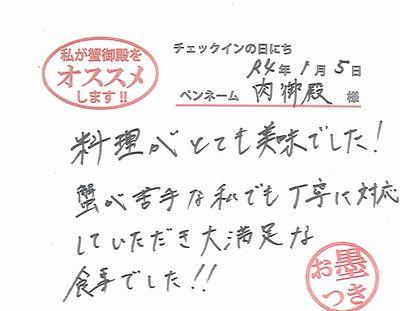 私が蟹御殿を
オススメ
します!!
チェックインの日にち
R4年1月5日
ペンネーム 肉御殿 様
料理がとても美味でした!
蟹が苦手な私でも丁寧に対応
していただき大満足な
食事でした!!
お墨
つき